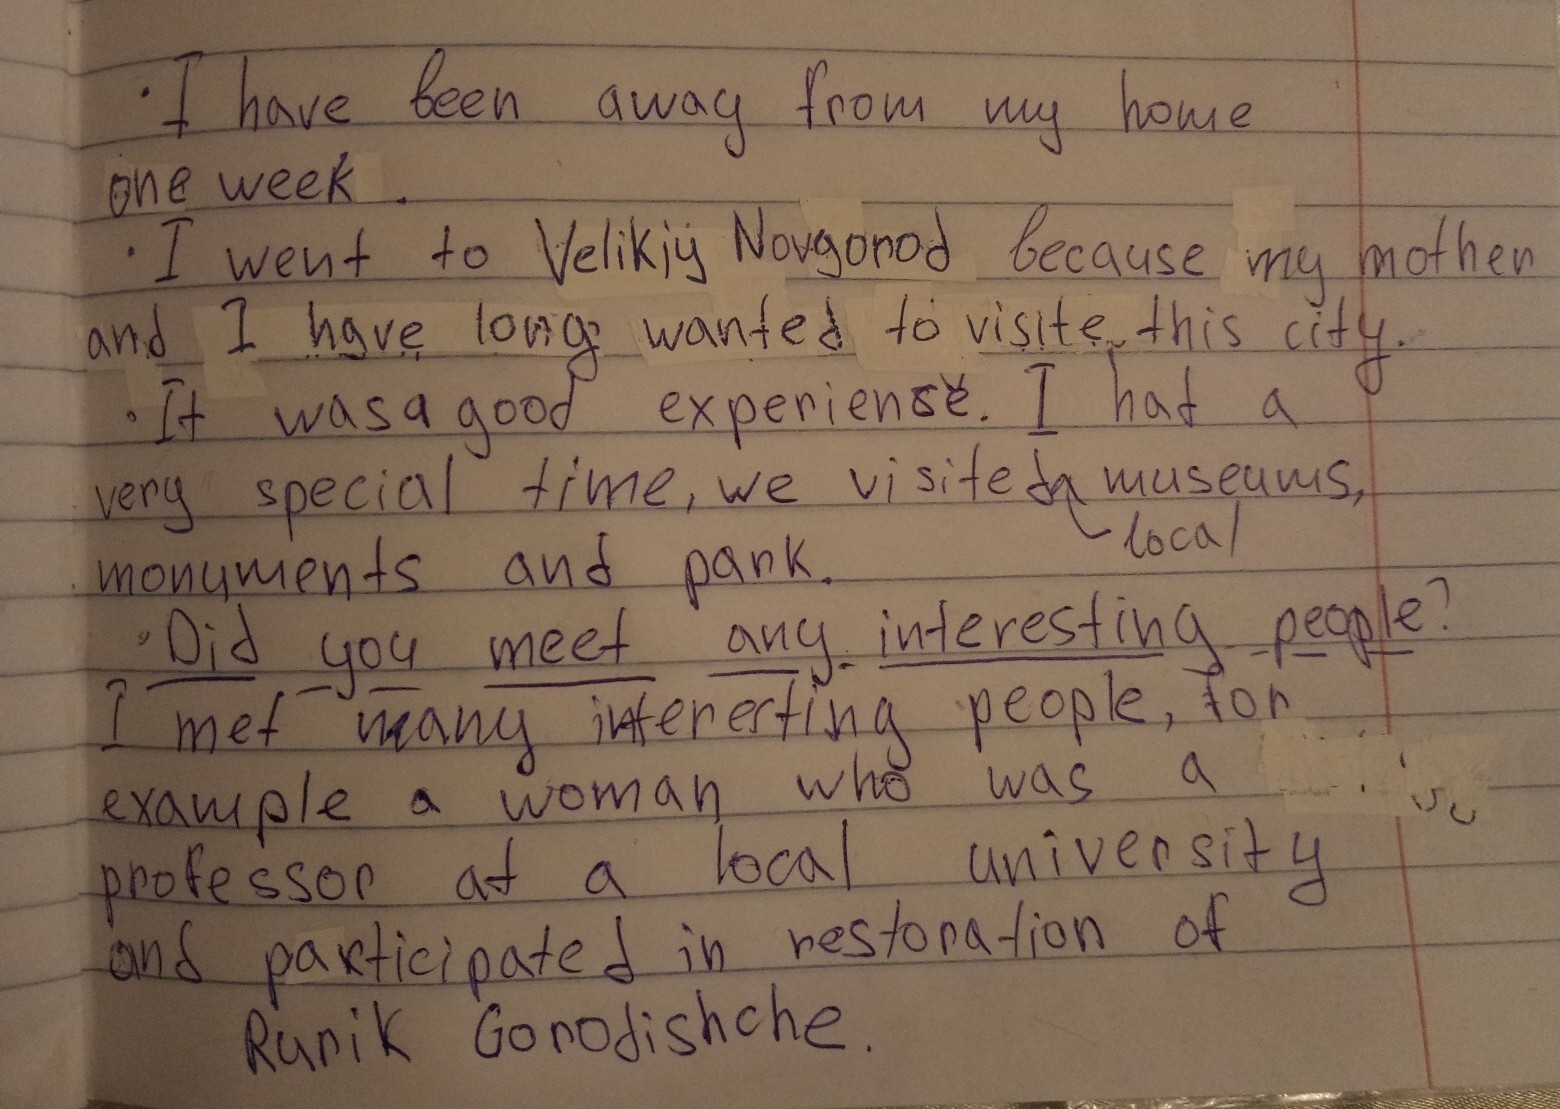 · I have been away from my home
one week.
· I went to Velikiy Novgorod because my mother
and I have long wanted to visite this city.
· It was a good experiense. I hat a
very special time, we visited museums,
local
monuments and park.
· Did you meet any interesting people?
I met many interesting people, for
example a woman who was a
professor at a local university
and participated in restoration of
Rurik Gorodishche.